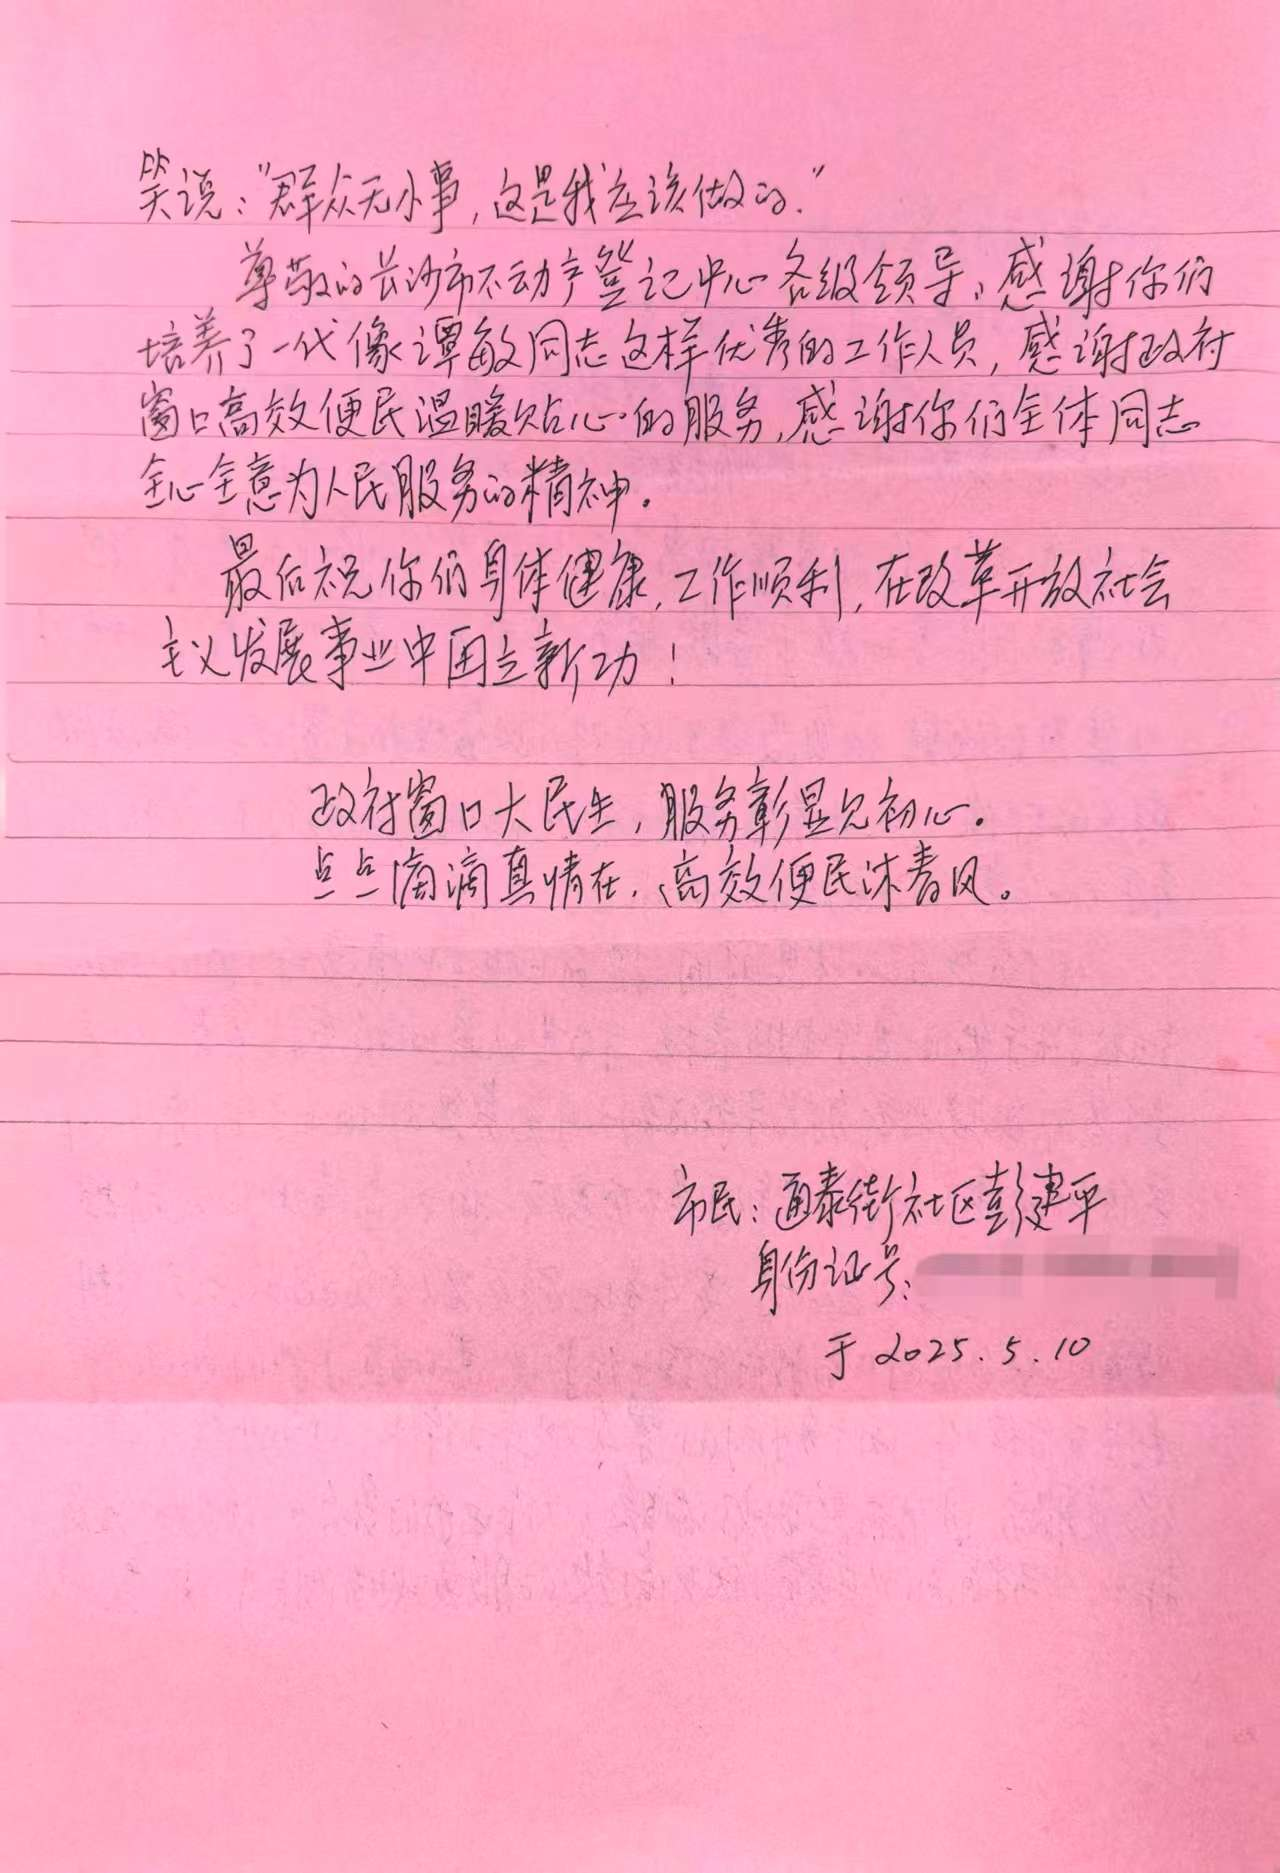 笑说："群众无小事，这是我应该做的."
尊敬的长沙市不动产登记中心各级领导，感谢你们
培养了一代像谭敏同志这样优秀的工作人员，感谢政府
窗口高效便民温暖贴心的服务，感谢你们全体同志
全心全意为人民服务的精神。
最后祝你们身体健康，工作顺利，在改革开放社会
主义发展事业中再立新功！
政府窗口大民生，服务彰显见初心。
点点滴滴真情在，高效便民沐春风。
市民：通泰街社区彭建平
身份证号：
于 2025.5.10